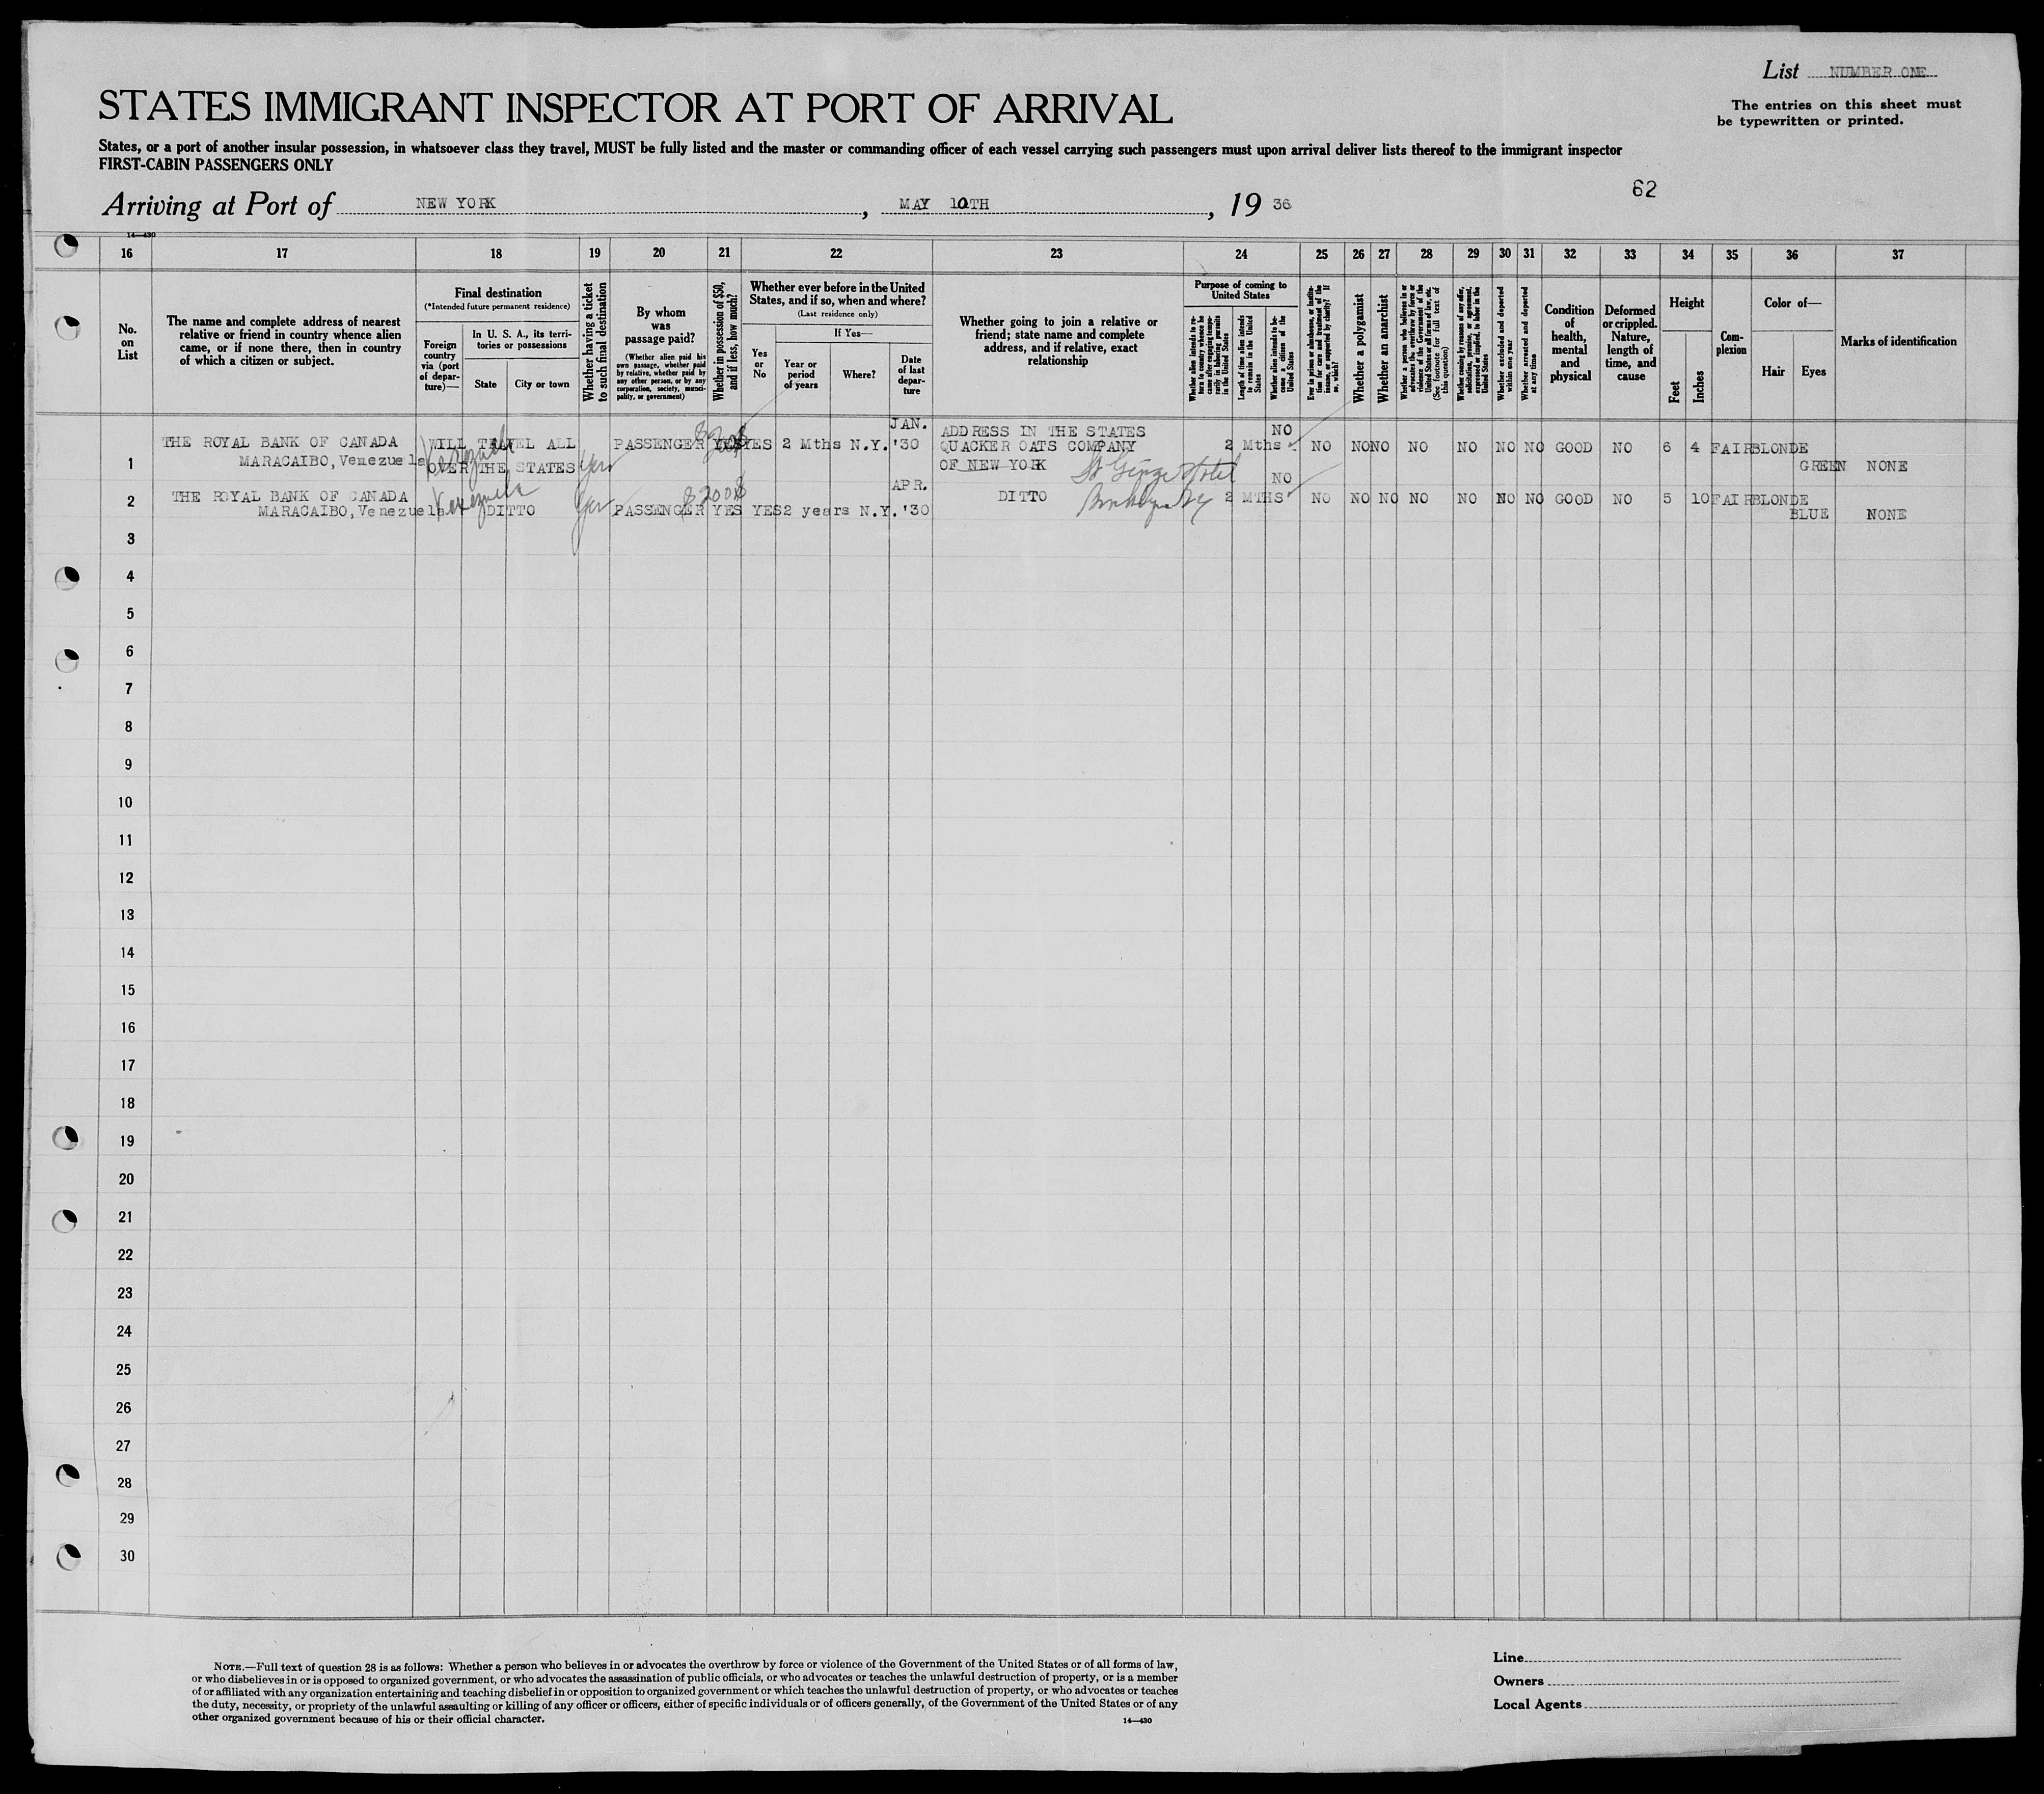 List NUMBER ONE
STATES IMMIGRANT INSPECTOR AT PORT OF ARRIVAL
The entries on this sheet must
be typewritten or printed.
States, or a port of another insular possession, in whatsoever class they travel, MUST be fully listed and the master or commanding officer of each vessel carrying such passengers must upon arrival deliver lists thereof to the immigrant inspector
FIRST-CABIN PASSENGERS ONLY
62
Arriving at Port of NEW YORK, MAY 10TH, 19 36
14—430
16 17 18 19 20 21 22 23 24 25 26 27 28 29 30 31 32 33 34 35 36 37
No.
on
List
The name and complete address of nearest
relative or friend in country whence alien
came, or if none there, then in country
of which a citizen or subject.
Final destination
(*Intended future permanent residence)
Foreign
country
via (port
of depar-
ture)—
In U. S. A., its terri-
tories or possessions
State
City or town
Whether having a ticket
to such final destination
By whom
was
passage paid?
(Whether alien paid his
own passage, whether paid
by relative, whether paid by
any other person, or by any
corporation, society, munici-
pality, or government)
Whether in possession of $50,
and if less, how much?
Whether ever before in the United
States, and if so, when and where?
(Last residence only)
Yes
or
No
If Yes—
Year or
period
of years
Where?
Date
of last
depar-
ture
Whether going to join a relative or
friend; state name and complete
address, and if relative, exact
relationship
Purpose of coming to
United States
Whether alien intends to re-
turn to country whence he
came after engaging tempo-
rarily in laboring pursuits
in the United States
Length of time alien intends
to remain in the United
States
Whether alien intends to be-
come a citizen of the
United States
Ever in prison or almshouse, or institu-
tion for care and treatment of the
insane, or supported by charity? If
so, which?
Whether a polygamist
Whether an anarchist
Whether a person who believes in or
advocates the overthrow by force or
violence of the Government of the
United States or all forms of law, etc.
(See footnote for full text of
this question)
Whether coming by reason of any offer,
solicitation, promise, or agreement,
expressed or implied, to labor in the
United States
Whether excluded and deported
within one year
Whether arrested and deported
at any time
Condition
of
health,
mental
and
physical
Deformed
or crippled.
Nature,
length of
time, and
cause
Height
Feet
Inches
Com-
plexion
Color of—
Hair
Eyes
Marks of identification
JAN.
THE ROYAL BANK OF CANADA WILL TRAVEL ALL PASSENGER YES YES 2 Mths N.Y. '30
MARACAIBO, Venezuela OVER THE STATES Yes
$200$
Venezuela
ADDRESS IN THE STATES
QUACKER OATS COMPANY
OF NEW YORK
St George Hotel
NO
2 Mths NO NO NO NO NO NO NO GOOD NO 6 4 FAIR BLONDE
1
GREEN NONE
APR.
THE ROYAL BANK OF CANADA Venezuela
2
MARACAIBO, Venezuela DITTO Yes PASSENGER YES YES 2 years N.Y. '30
$200$
DITTO
Brooklyn NY
NO
2 MTHS NO NO NO NO NO NO NO GOOD NO 5 10 FAIR BLONDE
BLUE NONE
3
4
5
6
7
8
9
10
11
12
13
14
15
16
17
18
19
20
21
22
23
24
25
26
27
28
29
30
NOTE.—Full text of question 28 is as follows: Whether a person who believes in or advocates the overthrow by force or violence of the Government of the United States or of all forms of law,
or who disbelieves in or is opposed to organized government, or who advocates the assassination of public officials, or who advocates or teaches the unlawful destruction of property, or is a member
of or affiliated with any organization entertaining and teaching disbelief in or opposition to organized government or which teaches the unlawful destruction of property, or who advocates or teaches
the duty, necessity, or propriety of the unlawful assaulting or killing of any officer or officers, either of specific individuals or of officers generally, of the Government of the United States or of any
other organized government because of his or their official character.
14—430
Line
Owners
Local Agents